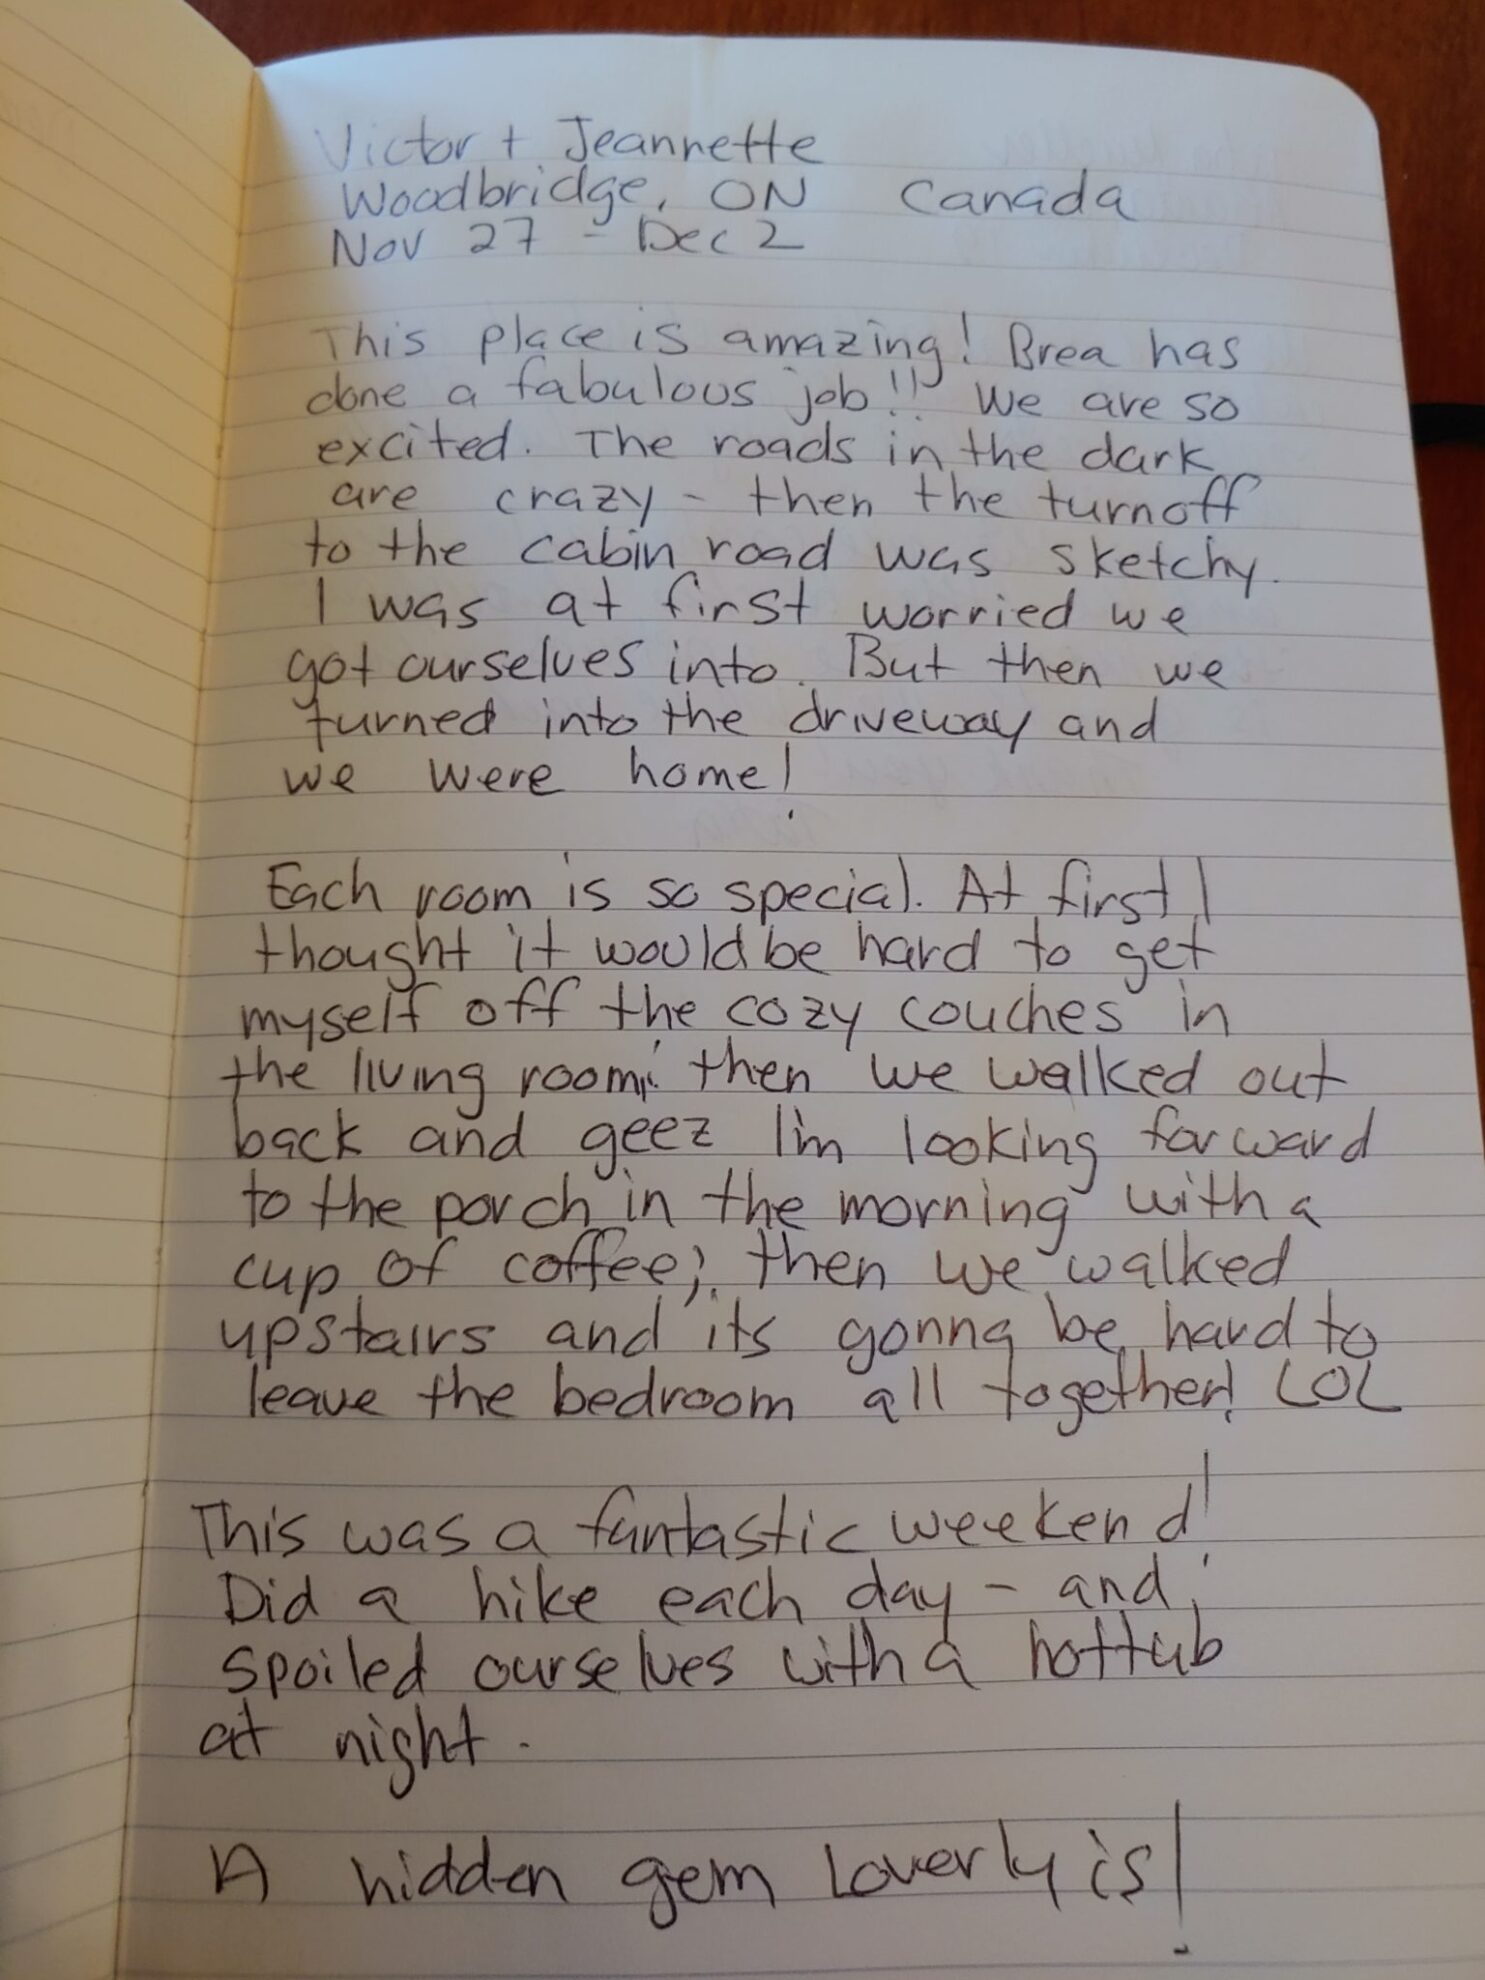 Victor + Jeannette
Woodbridge, ON Canada
Nov 27 - Dec 2
This place is amazing! Brea has
done a fabulous job!! We are so
excited. The roads in the dark
are crazy - then the turnoff
to the cabin road was sketchy.
I was at first worried we
got ourselves into. But then we
turned into the driveway and
we were home!
Each room is so special. At first I
thought it would be hard to get
myself off the cozy couches in
the living room; then we walked out
back and geez I'm looking forward
to the porch in the morning with a
cup of coffee; then we walked
upstairs and its gonna be hard to
leave the bedroom all together! LOL
This was a fantastic weekend!
Did a hike each day - and
spoiled ourselves with a hottub
at night.
A hidden gem Loverly is!